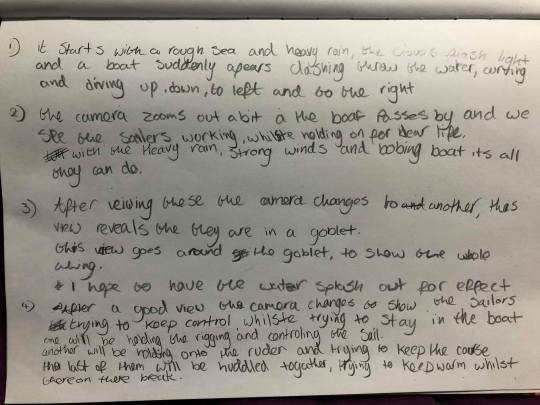 1) it starts with a rough sea and heavy rain, the clouds flash light
and a boat suddenly apears clashing threw the water, curving
and diving up, down, to left and to the right
2) the camera zooms out a bit a the boat passes by and we
see the sailers working, whilste holding on for dear life.
with the Heavy rain, strong winds and bobing boat its all
they can do.
3) After veiwing these the camera changes to another, this
view reveals the they are in a goblet.
this view goes around the goblet, to show the whole
thing.
I hope to have the water splash out for effect
4) After a good view the camera changes to show the Sailors
trying to keep control whilste trying to stay in the boat
one will be holding the rigging and controling the sail.
another will be holding onto the ruder and trying to keep the course
the last of them will be huddled togather, trying to keep warm whilst
there on there break.